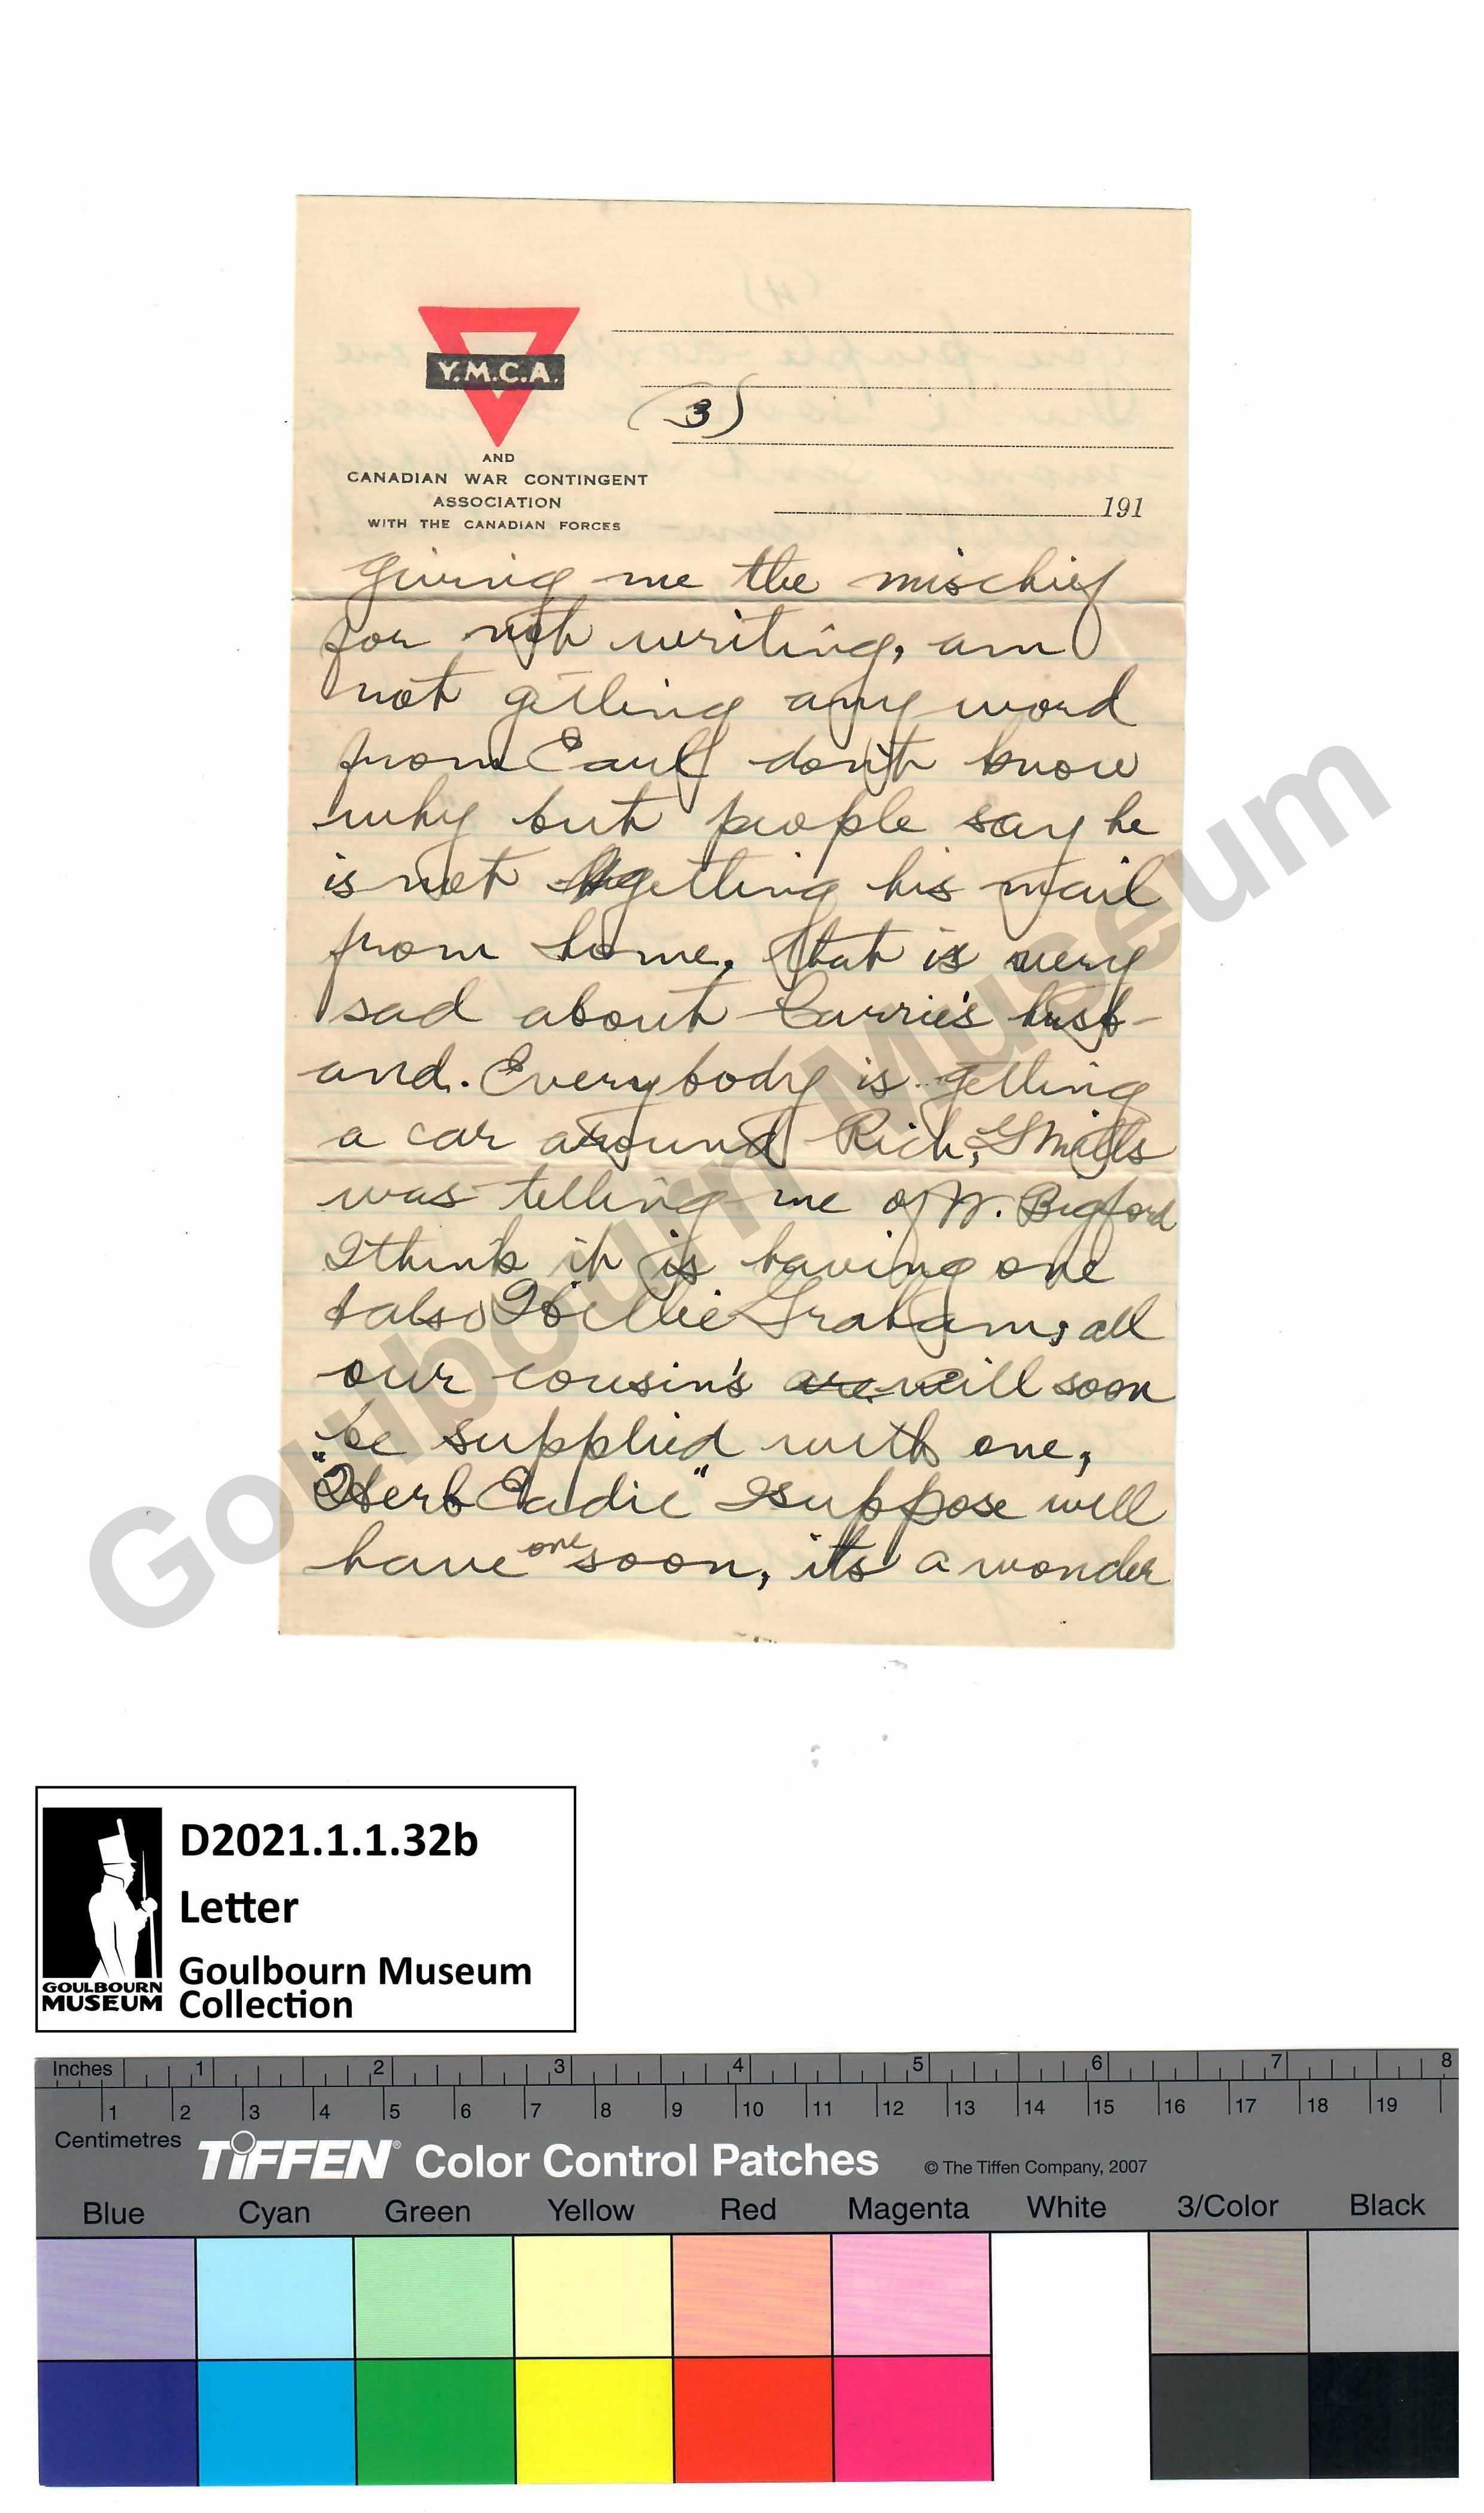 Y.M.C.A.
(3)
AND
CANADIAN WAR CONTINGENT
ASSOCIATION
WITH THE CANADIAN FORCES
191
giving me the mischief
for not writing, am
not getting any word
from Earl don't know
why but people say he
is not getting his mail
from home. that is very
sad about Carrie's husb-
and. Everybody is getting
a car around Rich, G Mills
was telling me of W. Bigford
I think it is having one
& also Willie Graham, all
our cousin's are will soon
be supplied with one,
"Herb Eadie" I suppose will
have one soon, its a wonder
Goulbourn Museum
D2021.1.1.32b
Letter
Goulbourn Museum
Collection
GOULBOURN
MUSEUM
Inches 1 2 3 4 5 6 7 8
1 2 3 4 5 6 7 8 9 10 11 12 13 14 15 16 17 18 19
Centimetres
TIFFEN® Color Control Patches © The Tiffen Company, 2007
Blue Cyan Green Yellow Red Magenta White 3/Color Black